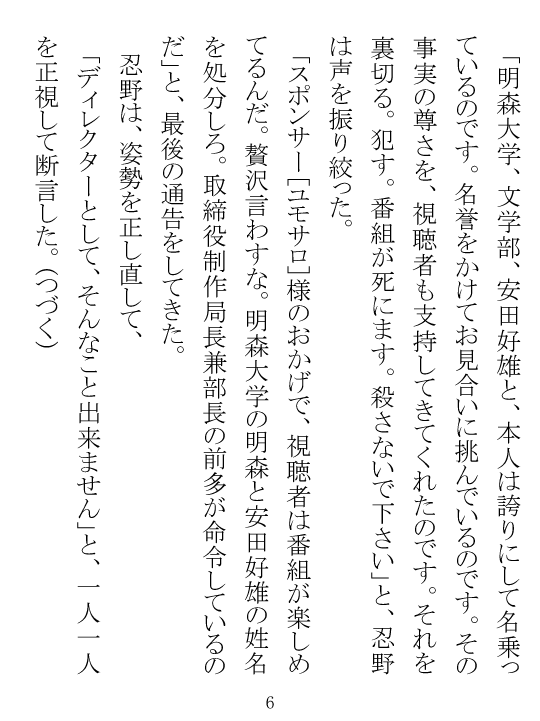 「明森大学、文学部、安田好雄と、本人は誇りにして名乗っ
ているのです。名誉をかけてお見合いに挑んでいるのです。その
事実の尊さを、視聴者も支持してきてくれたのです。それを
裏切る。犯す。番組が死にます。殺さないで下さい」と、忍野
は声を振り絞った。
「スポンサー[ユモサロ]様のおかげで、視聴者は番組が楽しめ
てるんだ。贅沢言わすな。明森大学の明森と安田好雄の姓名
を処分しろ。取締役制作局長兼部長の前多が命令しているの
だ」と、最後の通告をしてきた。
忍野は、姿勢を正し直して、
「ディレクターとして、そんなこと出来ません」と、一人一人
を正視して断言した。(つづく)
6